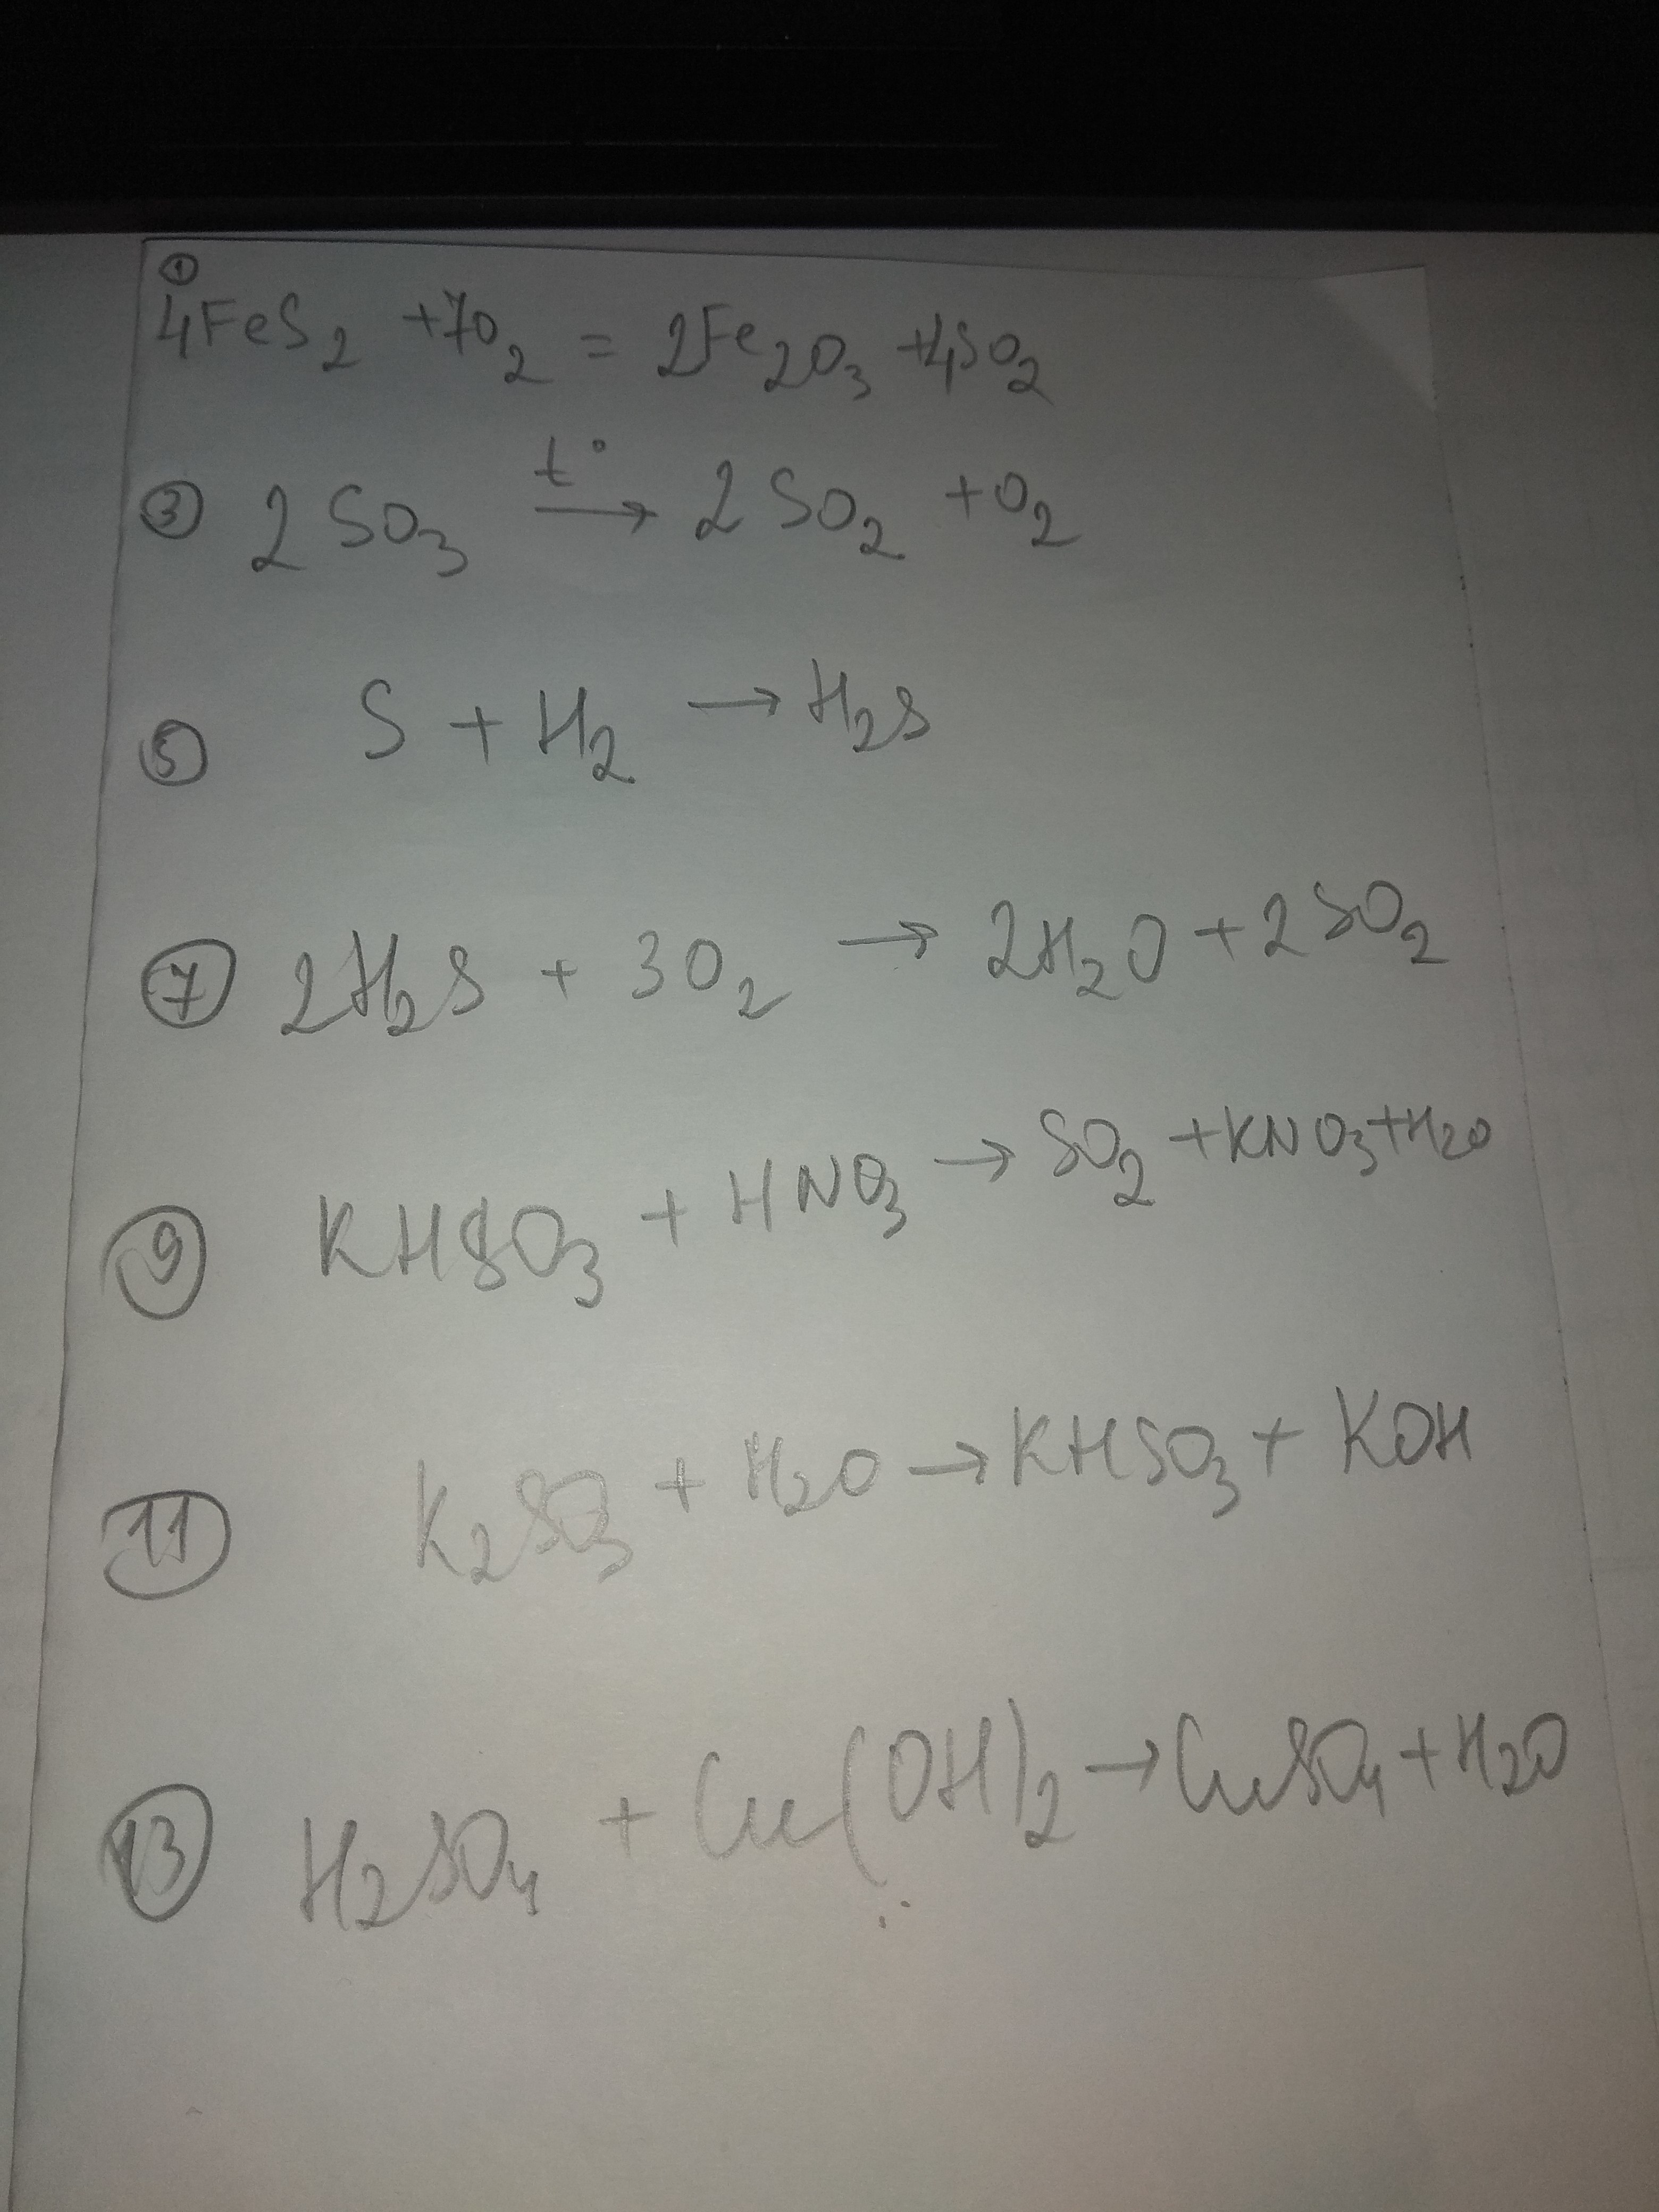 ①
4FeS₂ +7O₂ = 2Fe₂O₃ +4SO₂
③ 2SO₃ t° → 2SO₂ +O₂
⑤ S + H₂ → H₂S
⑦ 2H₂S + 3O₂ → 2H₂O + 2SO₂
⑨ KHSO₃ + HNO₃ → SO₂ + KNO₃ + H₂O
⑪ K₂SO₃ + H₂O → KHSO₃ + KOH
⑬ H₂SO₄ + Cu(OH)₂ → CuSO₄ + H₂O